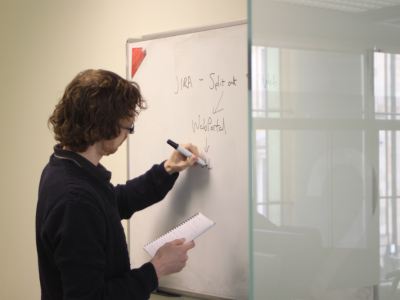 JIRA - Split out
WebPortal